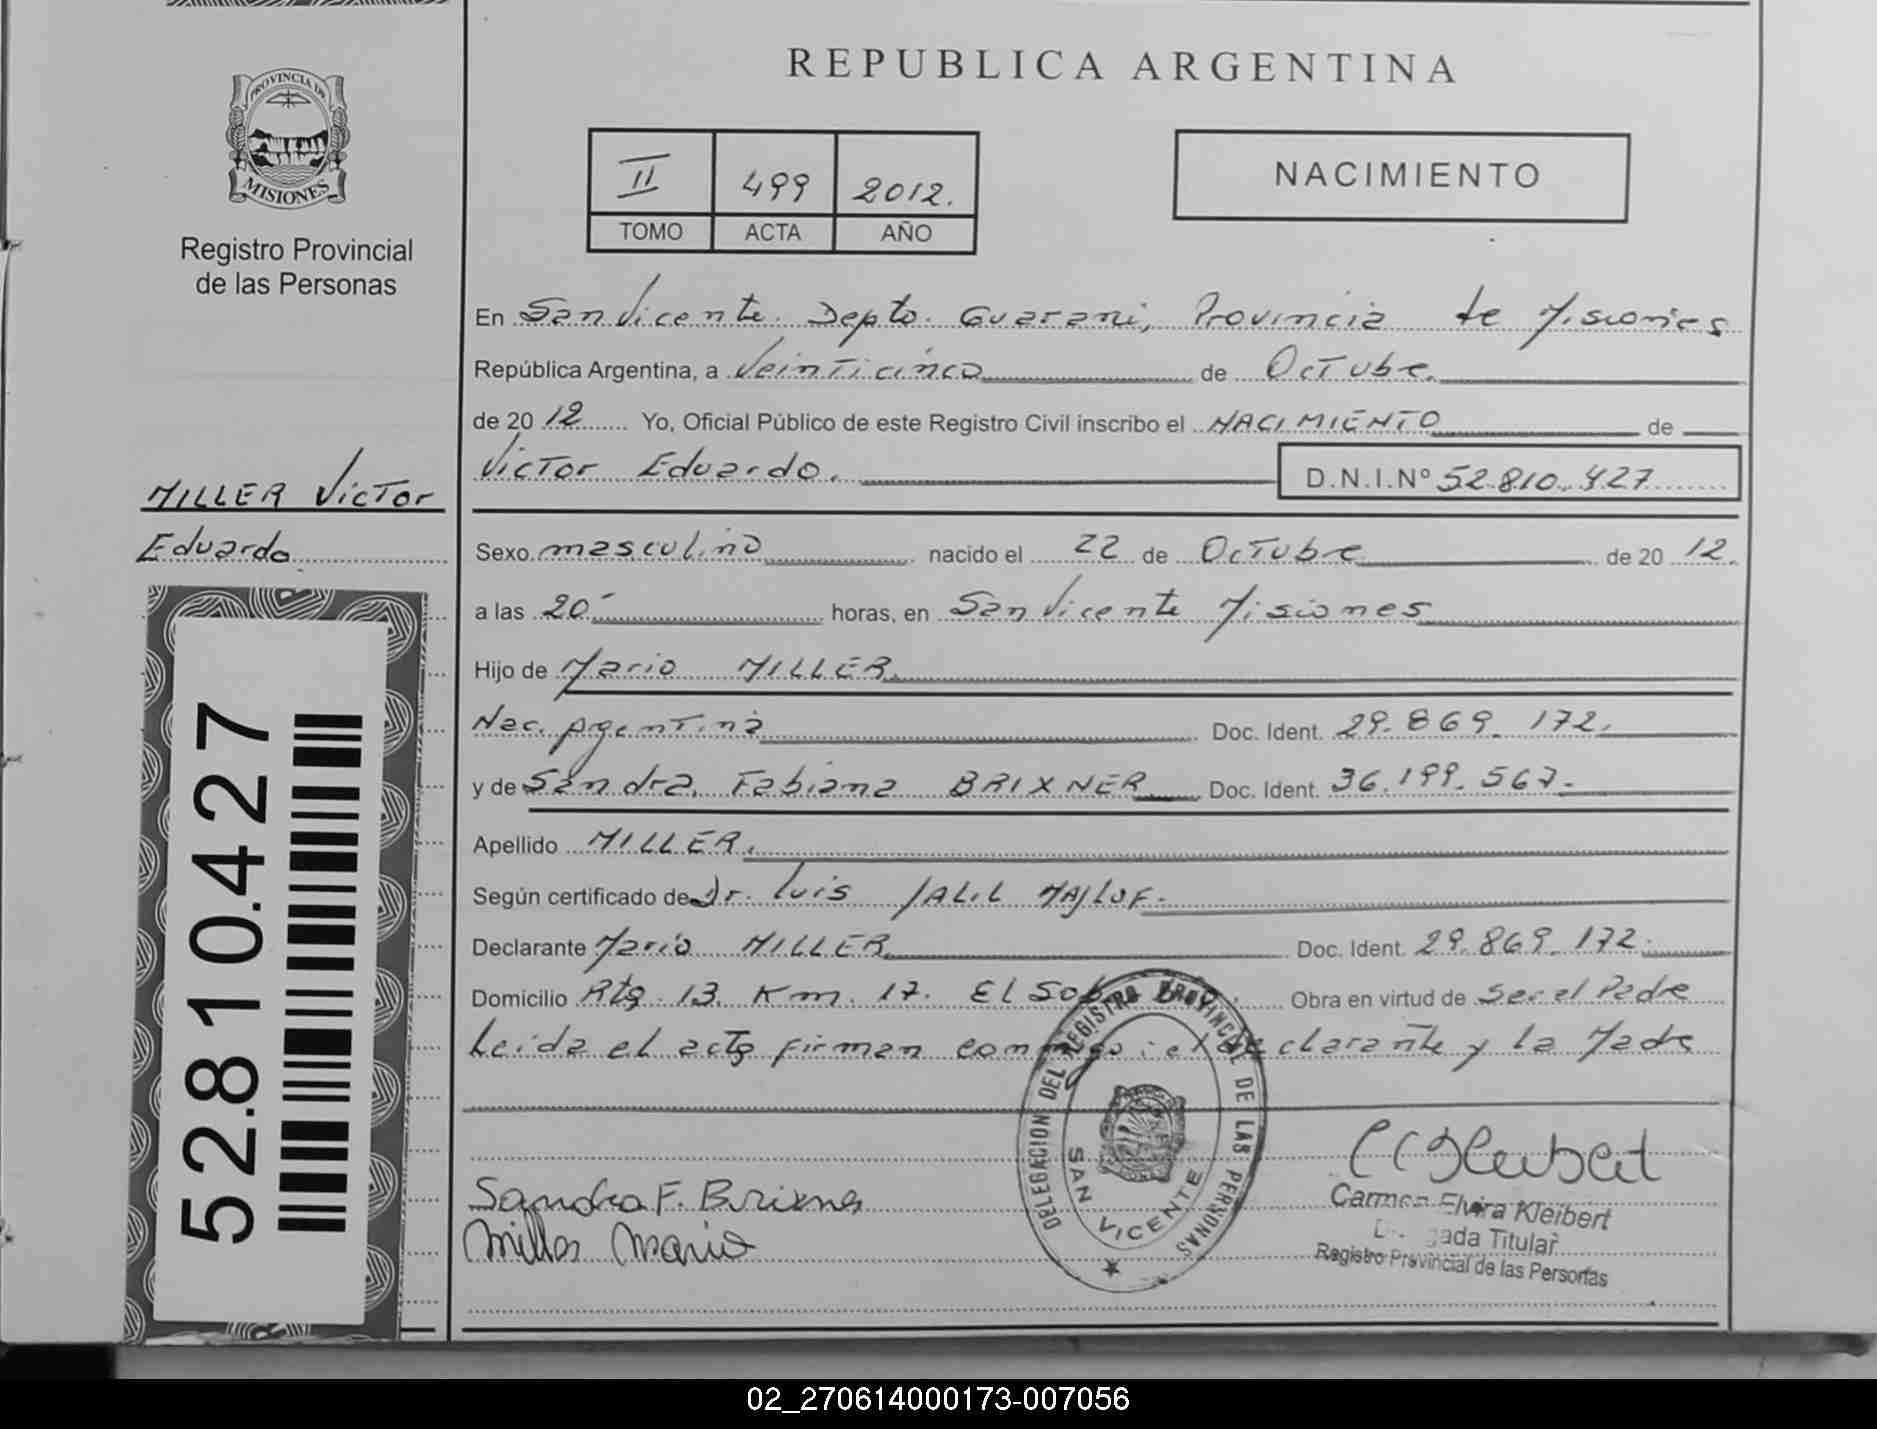 REPUBLICA ARGENTINA
PROVINCIA DE
MISIONES
Registro Provincial
de las Personas
II 499 2012.
TOMO ACTA AÑO
NACIMIENTO
En San Vicente. Depto. Guarani, Provincia de Misiones
República Argentina, a Veinticinco de Octubre.
de 20 12 Yo, Oficial Público de este Registro Civil inscribo el NACIMIENTO de
Victor Eduardo. D.N.I.Nº 52.810.427
MILLER Victor
Eduardo
52.810.427
Sexo masculino nacido el 22 de Octubre de 20 12.
a las 20.- horas, en San Vicente Misiones
Hijo de Mario MILLER.
Nac. Argentina Doc. Ident. 29.869.172.
y de Sandra Fabiana BRIXNER Doc. Ident. 36.199.567.-
Apellido MILLER.
Según certificado de Dr. Luis JALIL MAJLUF.-
Declarante Mario MILLER Doc. Ident. 29.869.172.
Domicilio Rta. 13. Km. 17. El Obra en virtud de Ser el Padre
Leida el acta firman conmigo: el declarante y la Madre
DELEGACION DEL REGISTRO PROVINCIAL DE LAS PERSONAS
SAN VICENTE
Sandra F. Brixner
Miller Mario
Carmen Elvira Kleibert
Delegada Titular
Registro Provincial de las Personas
02_270614000173-007056